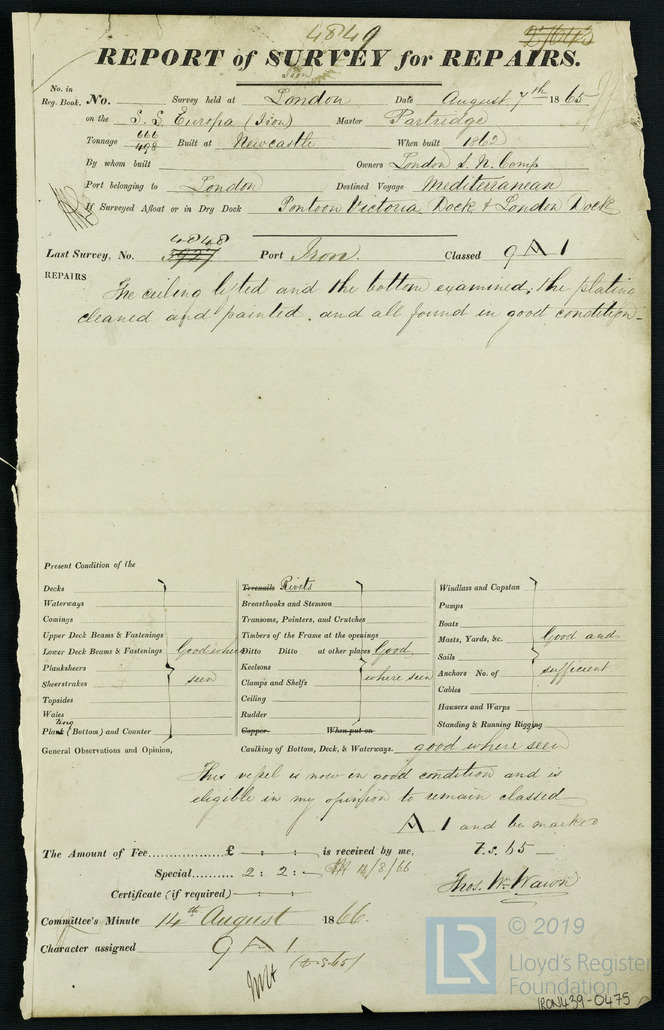 4849
REPORT of SURVEY for REPAIRS.
Iron
No. in
Reg. Book. No. Survey held at London Date August 7th 1865
on the S.S. Europa (Iron) Master Partridge
Tonnage 666 498 Built at Newcastle When built 1862
By whom built Owners London S. N. Comp
Port belonging to London Destined Voyage Mediterranean
If Surveyed Afloat or in Dry Dock Pontoon Victoria Dock & London Dock
4848
Last Survey, No. 3927 Port Iron. Classed 9 A 1
REPAIRS
The ceiling lifted and the bottom examined, the plating
cleaned and painted. and all found in good condition
Present Condition of the
Decks
Waterways
Comings
Upper Deck Beams & Fastenings
Lower Deck Beams & Fastenings Good where
Planksheers
Sheerstrakes seen
Topsides
Wales
Plank (Bottom) and Counter
Treenails Rivets
Breasthooks and Stemson
Transoms, Pointers, and Crutches
Timbers of the Frame at the openings
Ditto Ditto at other places Good
Keelsons
Clamps and Shelfs where seen
Ceiling
Rudder
Copper When put on
Windlass and Capstan
Pumps
Boats
Masts, Yards, &c. Good and
Sails
Anchors No. of sufficient
Cables
Hawsers and Warps
Standing & Running Rigging
General Observations and Opinion, Caulking of Bottom, Deck, & Waterways. good where seen
This vessel is now in good condition and is
eligible in my opinion to remain classed
A 1 and be marked
The Amount of Fee............... £ — : — : — is received by me, 7.s. 65
Special.......... 2 : 2 : — 14/8/66
Certificate (if required) — : — : — Thos. Wm. Wawn
Committee's Minute 14th August 1866.
Character assigned 9 A 1
© 2019
LR
Lloyd's Register
Foundation
IRON439-0475